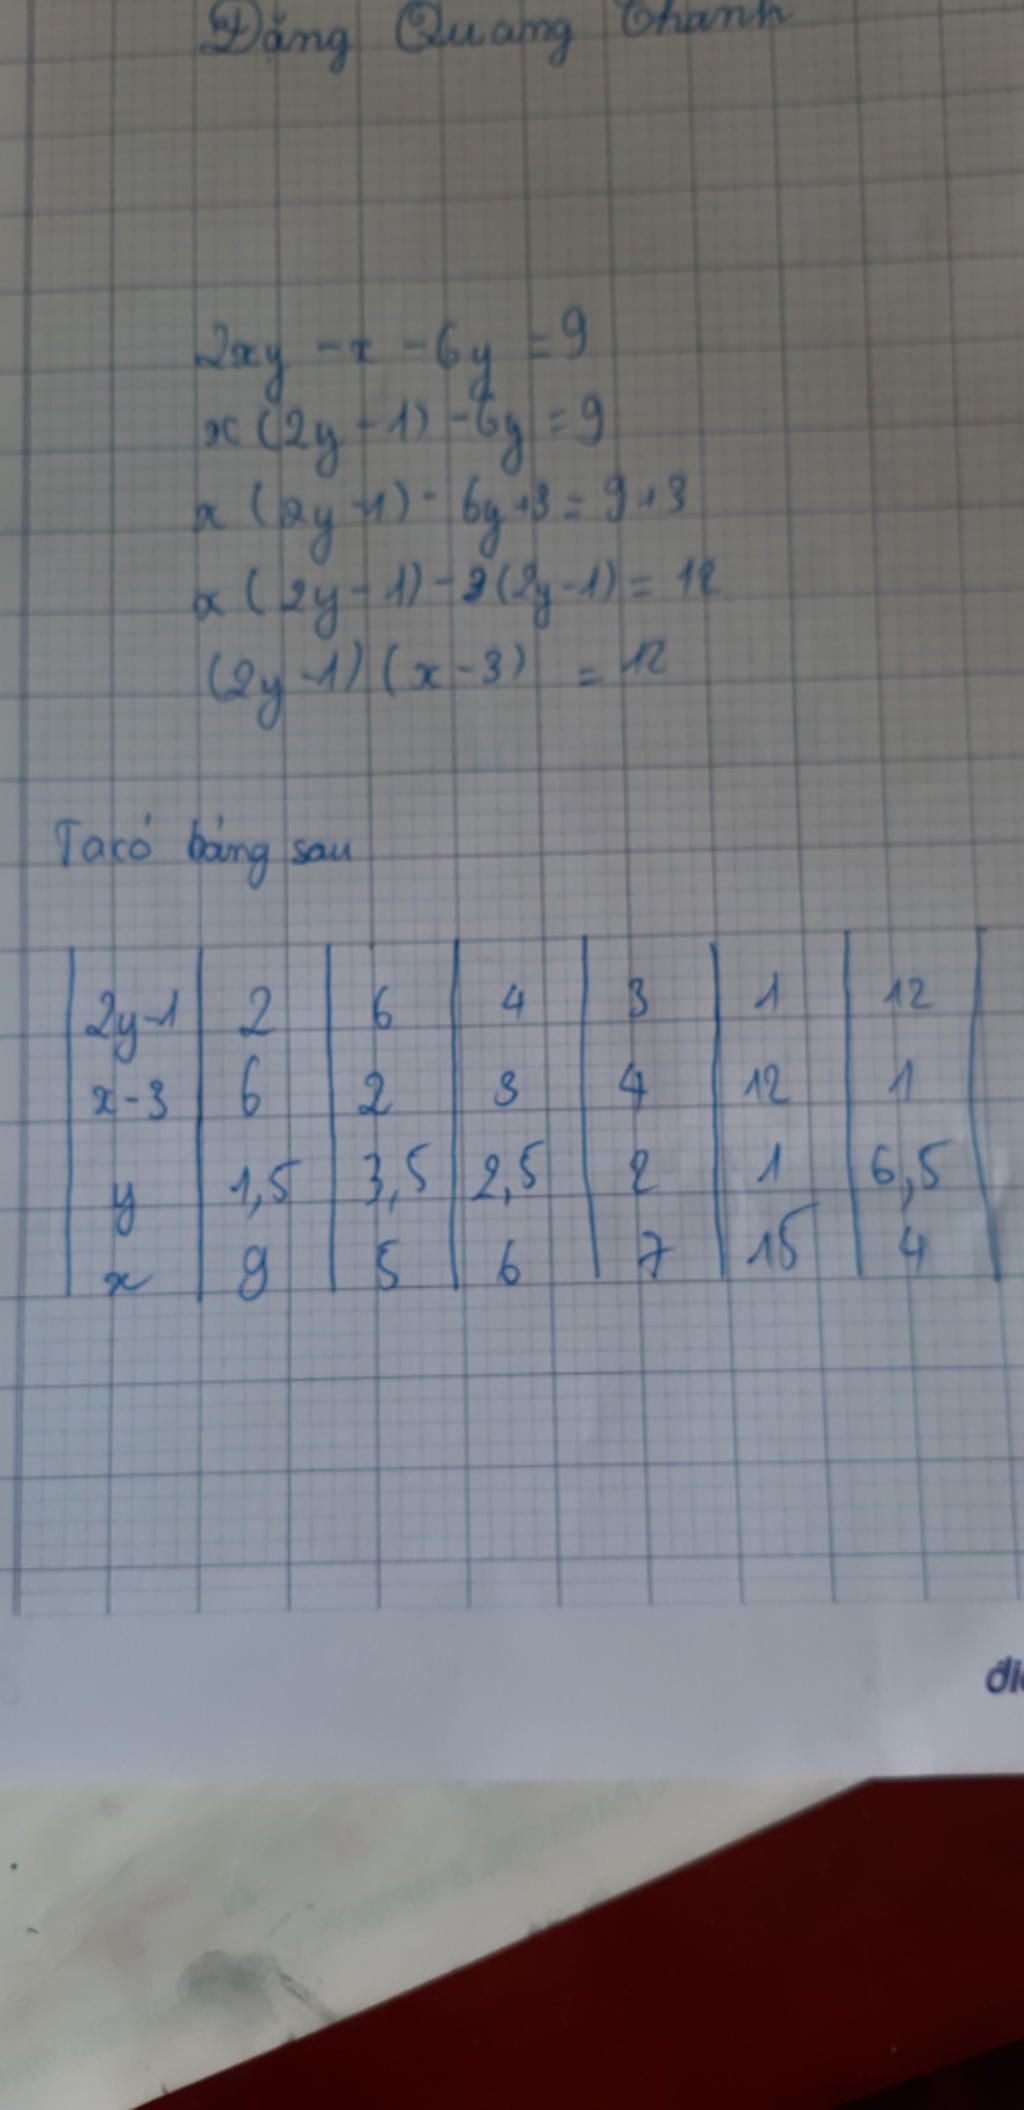 Đặng Quang Thanh
2xy - x - 6y = 9
x (2y - 1) - 6y = 9
x (2y - 1) - 6y + 3 = 9 + 3
x (2y - 1) - 3 (2y - 1) = 12
(2y - 1) (x - 3) = 12
Ta có bảng sau
2y-1 2 6 4 3 1 12
x-3 6 2 3 4 12 1
y 1,5 3,5 2,5 2 1 6,5
x 9 5 6 7 15 4